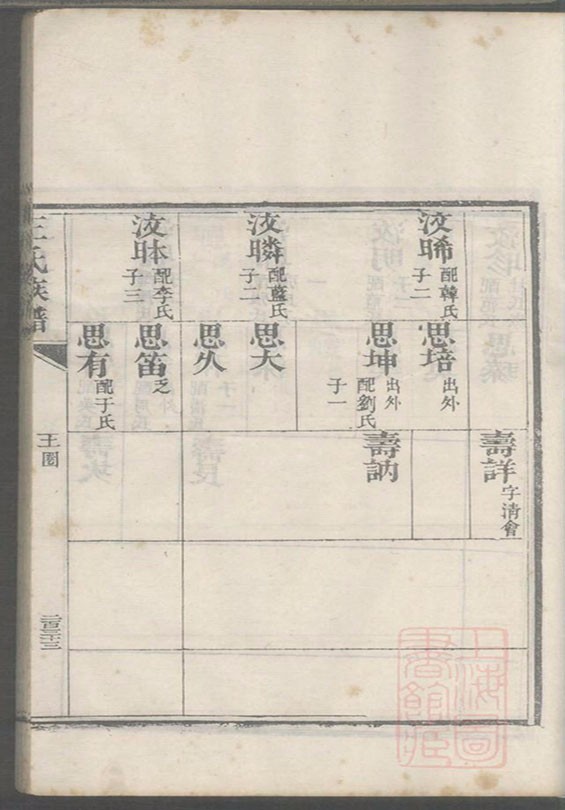 汶晞 配韓氏 子二
汶瞵 配藍氏 子二
汶昩 配李氏 子三
思培 出外
思坤 出外 配劉氏 子一
思大
思久
思笛 乏
思有 配于氏
壽詳 字清會
壽訥
王氏族譜
王圈
二百三十三
上海圖書館藏